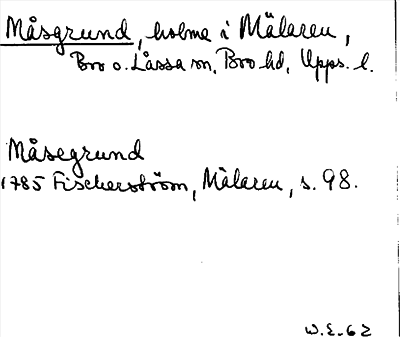 Måsgrund, holme i Mälaren,
Bro o. Låssa sn, Bro hd, Upps. l.
Måsegrund
1785 Fischerström, Mälaren, s. 98.
W.E-62